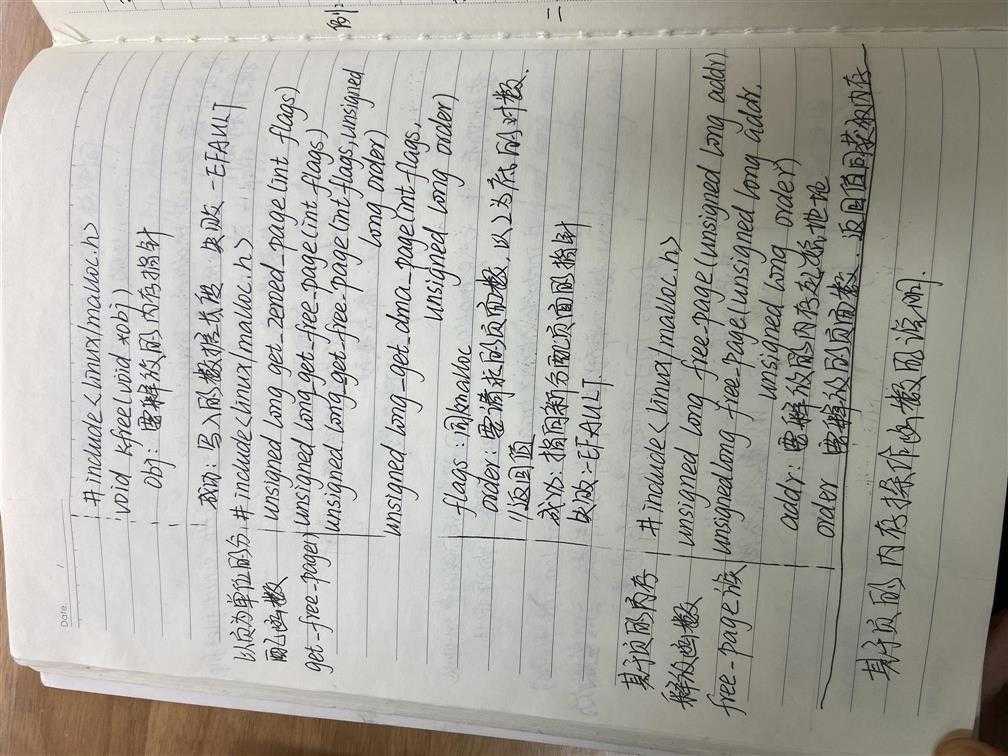 Date.
#include<linux/malloc.h>
void kfree(void *obj)
obj: 要释放的内存指针
成功: 写入的数据长度 失败 -EFAULT
以页为单位的分 #include<linux/malloc.h>
配函数 unsigned long get_zeroed_page(int flags)
get-free-page() unsigned long get-free-page(int flags)
unsigned long get-free-page(int flags, unsigned
long order)
unsigned long-get_dma_page(int flags,
unsigned long order)
flags: 同kmalloc
order: 要请求的页面数, 以2为底的对数.
//返回值
成功: 指向新分配页面的指针
失败:-EFAULT
基于页的内存 #include<linux/malloc.h>
释放函数 unsigned long free-page(unsigned long addr)
free-page函 unsignedlong free-page(unsigned long addr.
unsigned long order)
addr: 要释放的内存起始地址
order 要释放的页面数. 返回值同获物内存
基于页的内存操作函数的说明.